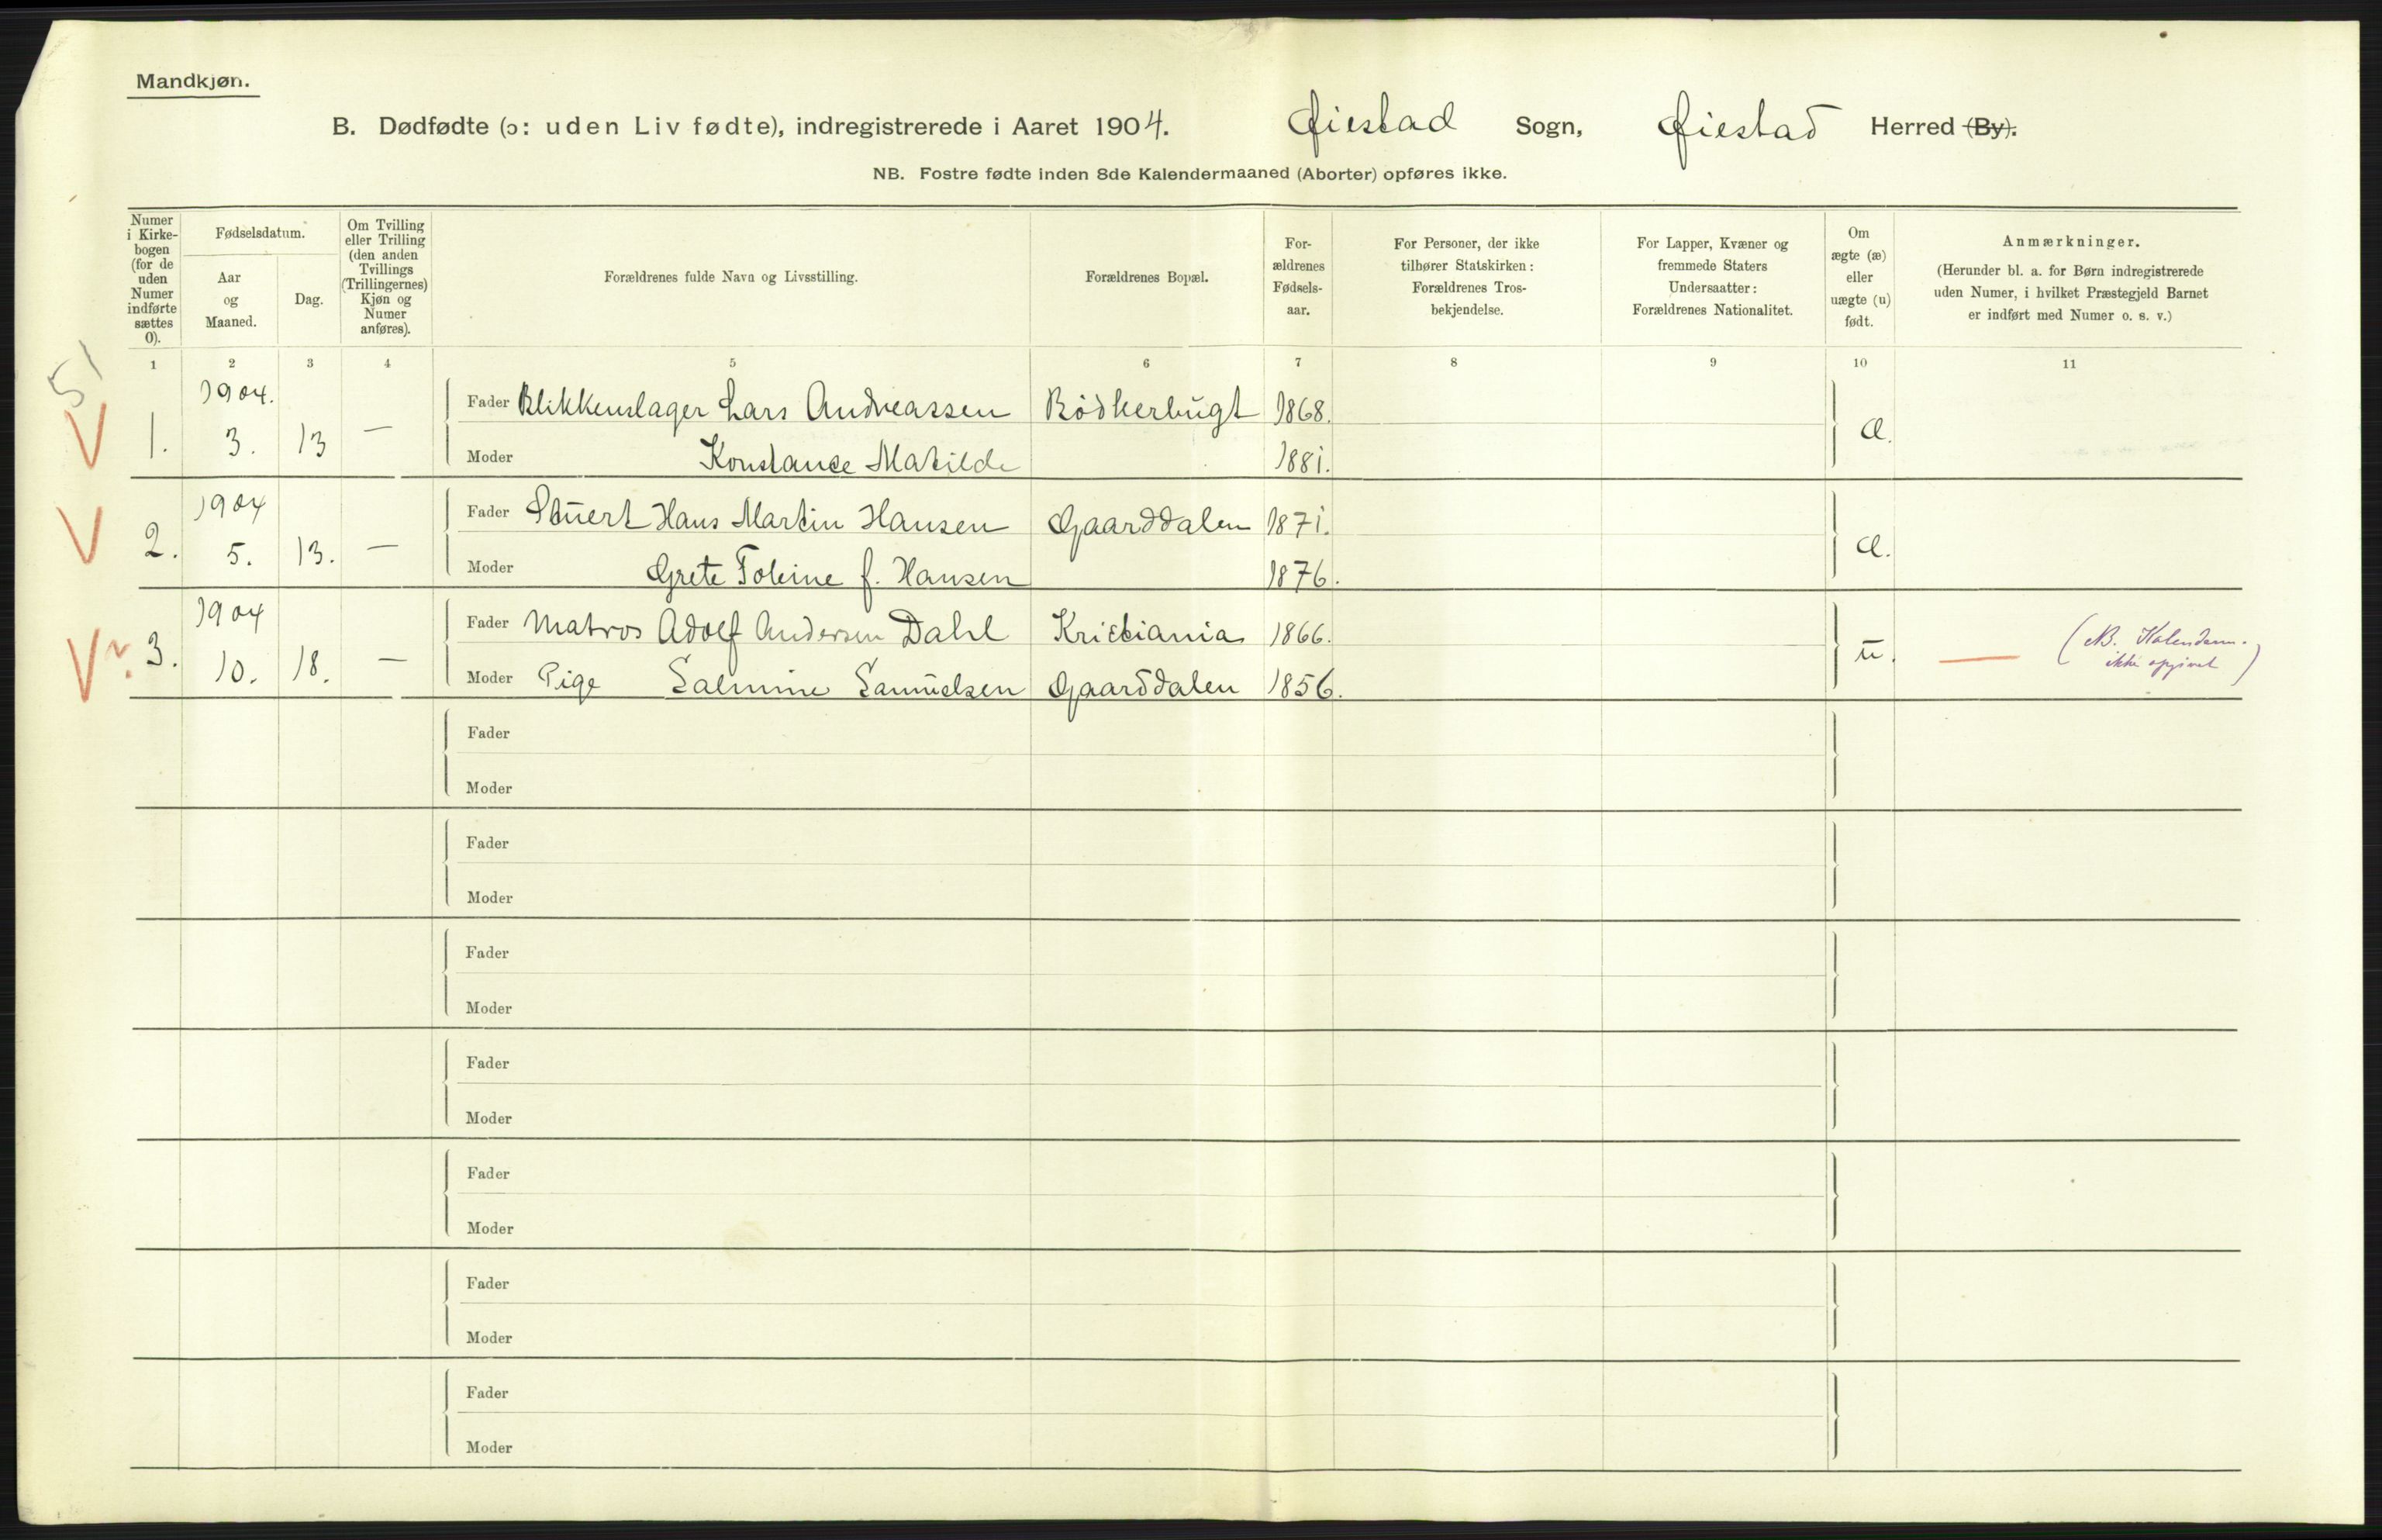 Mandkjøn.
B. Dødfødte (ɔ: uden Liv fødte), indregistrerede i Aaret 1904. Øiestad Sogn, Øiestad Herred (By).
NB. Fostre fødte inden 8de Kalendermaaned (Aborter) opføres ikke.
Numer i Kirke-bogen (for de uden Numer indførte sættes 0).
Fødselsdatum.
Aar og Maaned.
Dag.
Om Tvilling eller Trilling (den anden Tvillings (Trillingernes) Kjøn og Numer anføres).
Forældrenes fulde Navn og Livsstilling.
Forældrenes Bopæl.
For-ældrenes Fødsels-aar.
For Personer, der ikke tilhører Statskirken: Forældrenes Tros-bekjendelse.
For Lapper, Kvæner og fremmede Staters Undersaatter: Forældrenes Nationalitet.
Om ægte (æ) eller uægte (u) født.
Anmærkninger.
(Herunder bl. a. for Børn indregistrerede uden Numer, i hvilket Præstegjeld Barnet er indført med Numer o. s. v.)
1 2 3 4 5 6 7 8 9 10 11
51
1904.
V 1. 3. 13 —
Fader Blikkenslager Lars Andreassen Bödkerbugt 1868.
Moder Konstance Matilde 1881.
æ.
1904
V 2. 5. 13. —
Fader Stuert Hans Martin Hansen Gaarddalen 1871.
Moder Grete Toline f. Hansen 1876.
æ.
1904
V 3. 10. 18. —
Fader Matros Adolf Andersen Dahl Kristiania 1866.
Moder Pige Salmine Samuelsen Gaarddalen 1856.
u. — (NB. Kalenderm. ikke opgivet)
Fader
Moder
Fader
Moder
Fader
Moder
Fader
Moder
Fader
Moder
Fader
Moder
Fader
Moder